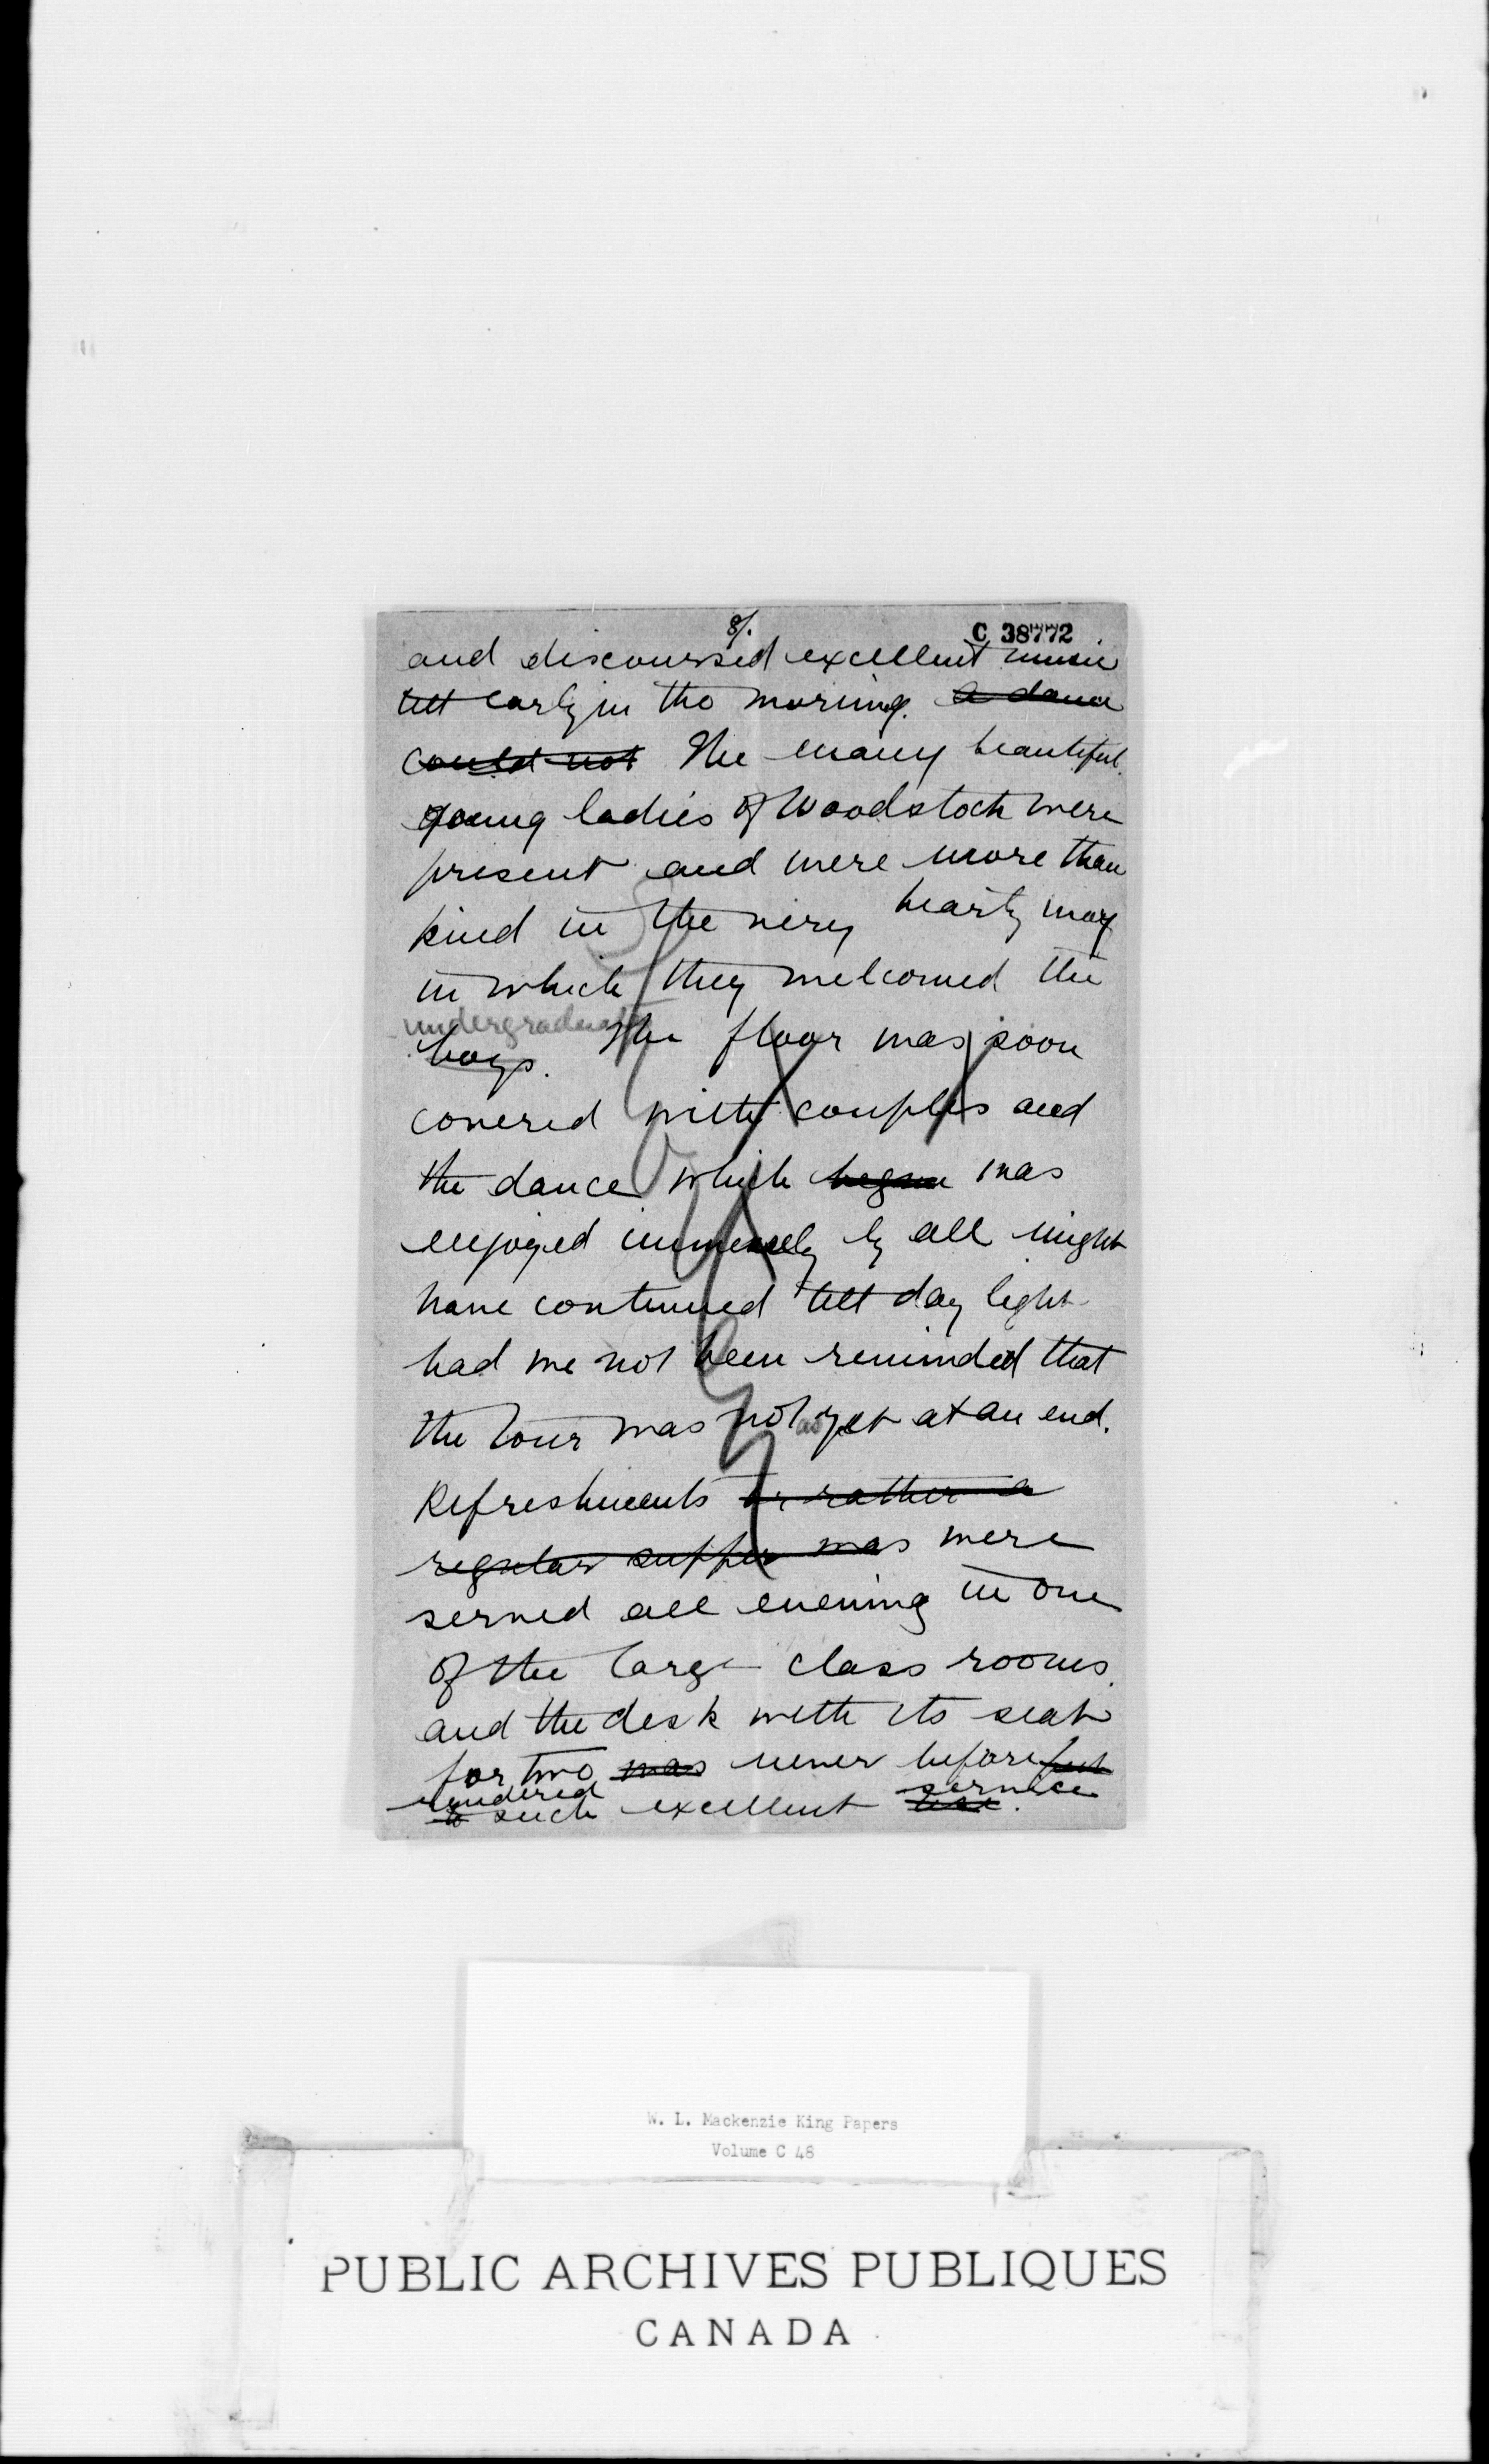 8/.
C 38772
and discoursed excellent music
till early in the morning. a dance
could not The many beautiful
young ladies of Woodstock were
present and were more than
kind in the very hearty way
in which they welcomed the
undergraduates
boys. The floor was soon
covered with couples and
the dance which began was
enjoyed immensely by all might
have continued till day light
had we not been reminded that
the tour was not as yet at an end.
Refreshments or rather a
regular supper was were
served all evening in one
of the large class rooms.
and the desk with its seat
for two was never before put
rendered service
to such excellent use.
W. L. Mackenzie King Papers
Volume C 48
PUBLIC ARCHIVES PUBLIQUES
CANADA